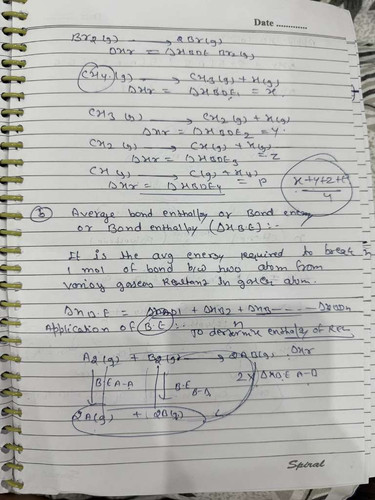 Date ............
Br2(g) → 2Br(g)
ΔHr = ΔHBDE Br2(g)
CH4(g) → CH3(g) + H(g)
ΔHr = ΔHBDE1 = x
CH3(g) → CH2(g) + H(g)
ΔHr = ΔHBDE2 = y
CH2(g) → CH(g) + H(g)
ΔHr = ΔHBDE3 = z
CH(g) → C(g) + H(g)
ΔHr = ΔHBDE4 = p
x+y+z+p
4
Average bond enthalpy or Bond energy
or Bond enthalpy (ΔHB.E) :-
It is the avg energy required to break
1 mol of bond b/w two atom from
various gaseous in atom.
ΔHB.E = + ΔHD2 + ......
n
Application of B.E :-
To determine enthalpy of
A2(g) + B2(g) → 2AB(g) ΔHr
B.E A-A
B.E B-B
2 x ΔHB.E A-B
2A(g) + 2B(g)
Spiral